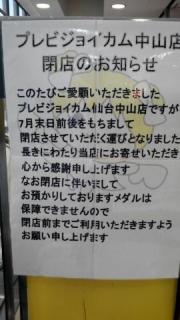 プレビジョイカム中山店
閉店のお知らせ
このたびご愛願いただきました
プレビジョイカム仙台中山店ですが
7月末日前後をもちまして
閉店させていただく運びとなりました
長きにわたり当店にお寄せいただき
心から感謝申し上げます
なお閉店に伴いまして
お預かりしておりますメダルは
保障できませんので
閉店前までご利用いただきますよう
お願い申し上げます